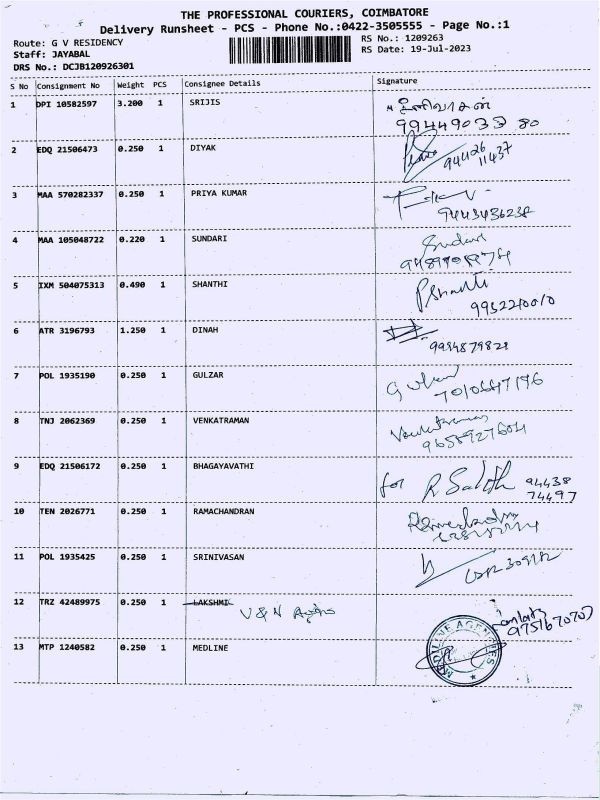 THE PROFESSIONAL COURIERS, COIMBATORE
Delivery Runsheet - PCS - Phone No.:0422-3505555 - Page No.:1
Route: G V RESIDENCY
RS No.: 1209263
Staff: JAYABAL
RS Date: 19-Jul-2023
DRS No.: DCJB120926301
S No Consignment No Weight PCS Consignee Details Signature
1 DPI 10582597 3.200 1 SRIJIS
99449033 80
2 EDQ 21506473 0.250 1 DIYAK
94426
11437
3 MAA 570282337 0.250 1 PRIYA KUMAR
9443436238
4 MAA 105048722 0.220 1 SUNDARI
5 IXM 504075313 0.490 1 SHANTHI PShanthi
9932210010
6 ATR 3196793 1.250 1 DINAH
9994879828
7 POL 1935190 0.250 1 GULZAR
7010647196
8 TNJ 2062369 0.250 1 VENKATRAMAN Venkatraman
9 EDQ 21506172 0.250 1 BHAGAYAVATHI for 94438
74497
10 TEN 2026771 0.250 1 RAMACHANDRAN
11 POL 1935425 0.250 1 SRINIVASAN
12 TRZ 42489975 0.250 1 LAKSHMI
V & N
9751670707
13 MTP 1240582 0.250 1 MEDLINE
MEDLINE AGENCIES